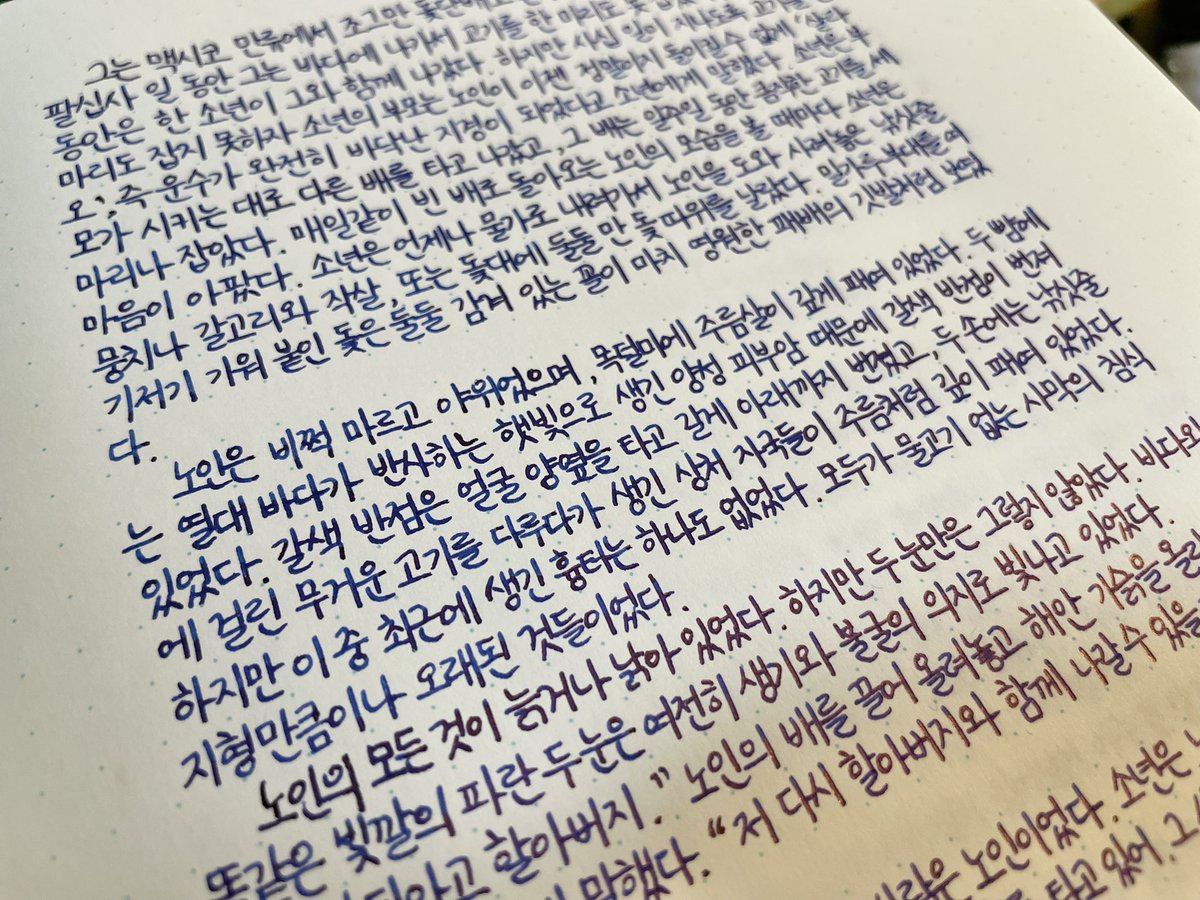 그는 맥시코 만류에서 조그만 돛단배로
팔십사 일 동안 그는 바다에 나가서 고기를 한 마리도
동안은 한 소년이 그와 함께 나갔다. 하지만 사십 일이 지나도록 고기를
마리도 잡지 못하자 소년의 부모는 노인이 이젠 정말이지 돌이킬 수 없게 '살라
오', 즉 운수가 완전히 바닥난 지경이 되었다고 소년에게 말했다. 소년은 부
모가 시키는 대로 다른 배를 타고 나갔고, 그 배는 일주일 동안 큼직한 고기를 세
마리나 잡았다. 매일같이 빈 배로 돌아오는 노인의 모습을 볼 때마다 소년은
마음이 아팠다. 소년은 언제나 물가로 내려가서 노인을 도와 사려놓은 낚싯줄
뭉치나 갈고리와 작살, 또는 돛대에 둘둘 만 돛 따위를 날랐다. 밀가루 부대를 여
기저기 기워 붙인 돛은 둘둘 감겨 있는 꼴이 마치 영원한 패배의 깃발처럼 보였
다.
노인은 비쩍 마르고 야위었으며, 목덜미에 주름살이 깊게 패여 있었다. 두 뺨에
는 열대 바다가 반사하는 햇빛으로 생긴 양성 피부암 때문에 갈색 반점이 번져
있었다. 갈색 반점은 얼굴 양옆을 타고 길게 아래까지 번졌고, 두 손에는 낚싯줄
에 걸린 무거운 고기를 다루다가 생긴 상처 자국들이 주름처럼 깊이 패여 있었다.
하지만 이 중 최근에 생긴 흉터는 하나도 없었다. 모두가 물고기 없는 사막의 침식
지형만큼이나 오래된 것들이었다.
노인의 모든 것이 늙거나 낡아 있었다. 하지만 두 눈만은 그렇지 않았다. 바다와
똑같은 빛깔의 파란 두 눈은 여전히 생기와 불굴의 의지로 빛나고 있었다.
할아버지." 노인의 배를 끌어 올려놓고 해안 기슭을 올라
말했다. "저 다시 할아버지와 함께 나갈 수 있을
노인이었다. 소년은
타고 있어. 그